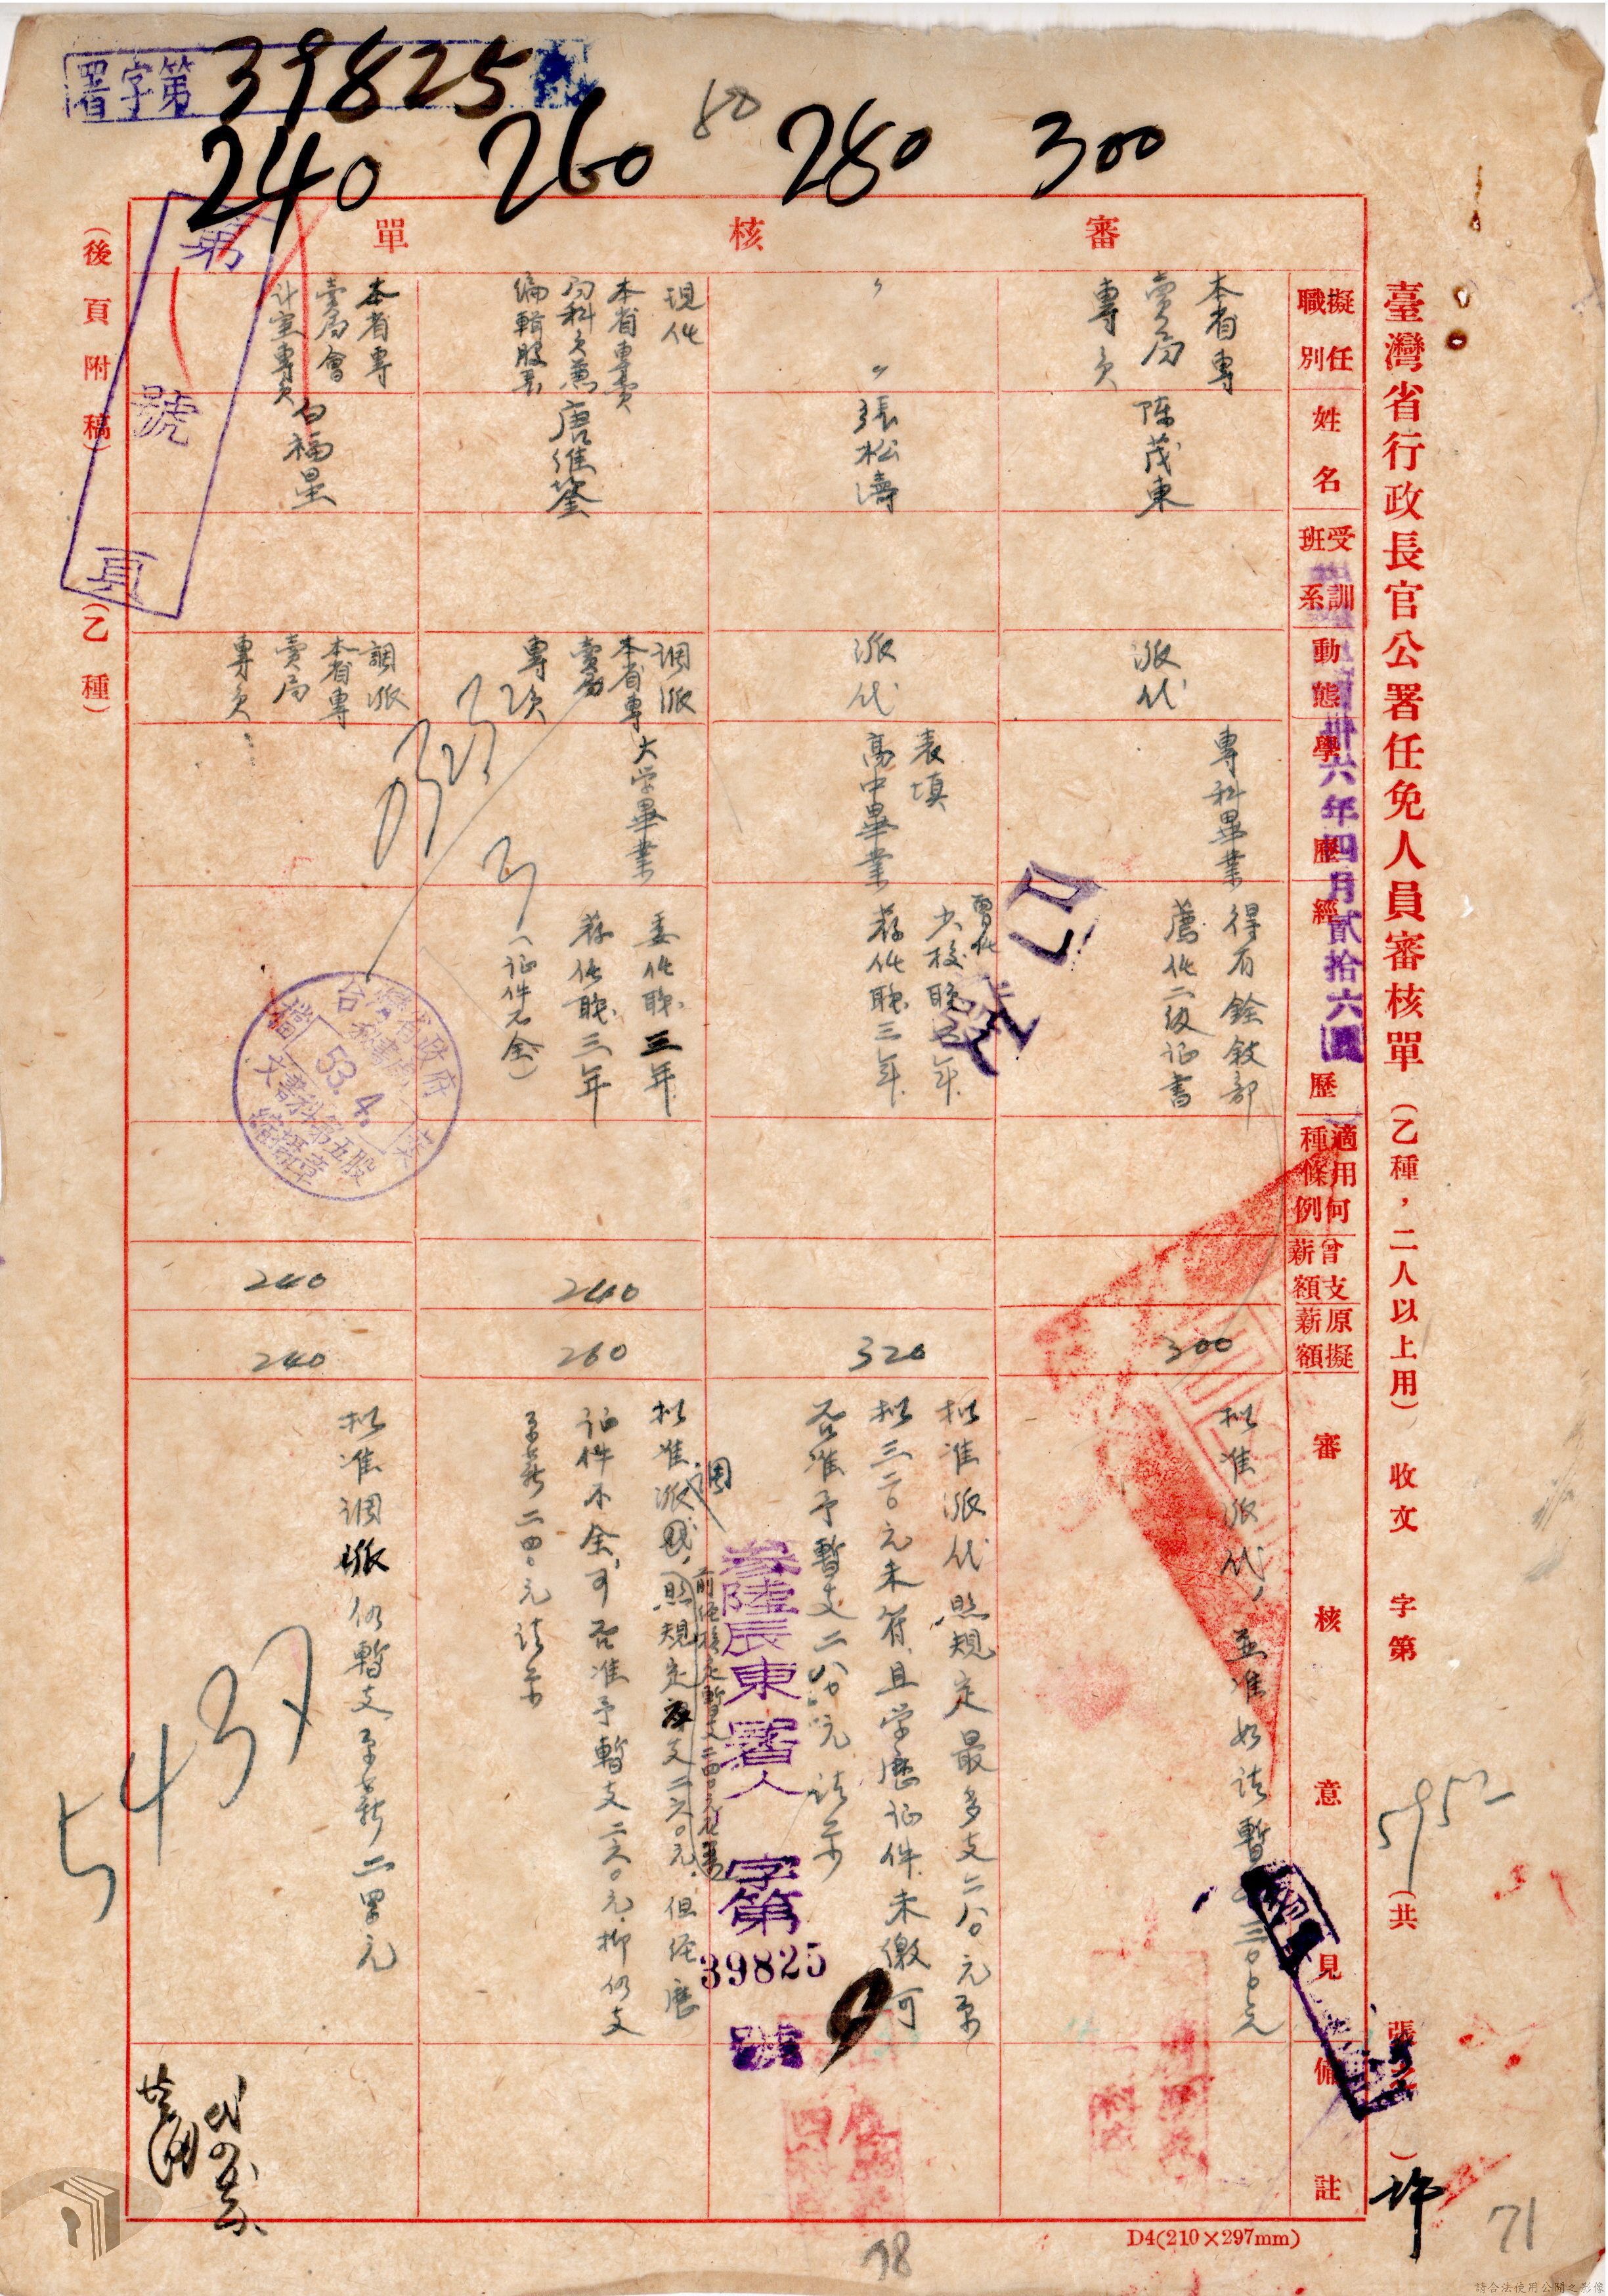 署字第 39825
240 260 280 300
80
臺灣省行政長官公署任免人員審核單(乙種，二人以上用) 收文 字第 (共 張之 )
5952
許
71
審核單
擬任職別
姓名
受訓班系
動態
學歷
經歷
適用何種條例
曾支薪額
原擬薪額
審核意見
備註
卅六年四月貳拾六
本省專
賣局
專員
陳茂東
派代
專科畢業
得有銓敍部
薦任二級证書
300
拟准派代，並准如該暫支三〇〇元
已发
〃 〃
張松濤
派代
表填
高中畢業
曾任
少校職五年
荐任职三年
320
拟准派代照規定最多支二八〇元原
拟三二〇元未符，且学歷证件未繳可
否准予暫支二八〇元 請示
叁陸辰東署人 字第 39825 號
現任
本省專賣
局科員兼
編輯股長
唐維鎣
調派
本省專
賣局
專員
大学畢業
委任职三年
荐任职三年
(证件不全)
240
260
拟准派
調
照規定應支二六〇元，但经歷
前经核定暫支二四〇元
证件不全，可否准予暫支二六〇元，抑仍支
原薪二四〇元 請示
本省專
賣局會
計室專員
白福星
調派
本省專
賣局
專員
240
240
拟准調派仍暫支原薪二四〇元
5437
第 號 頁
台灣省政府
53. 4.
文書科第五股
檔
(後頁附稿) (乙種)
D4(210×297mm)
78
請合法使用公開之影像